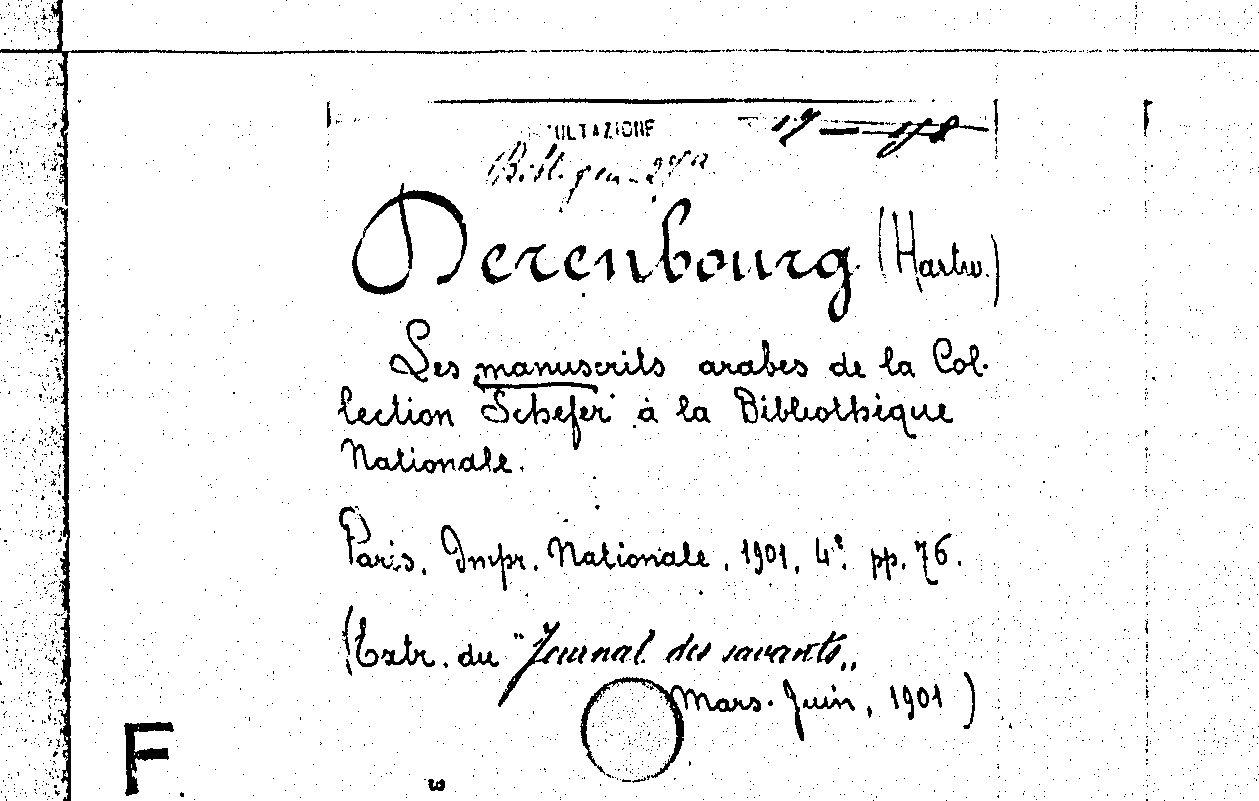 ULTAZIONE
Derenbourg (Hartw.)
Les manuscrits arabes de la Col-
lection Schefer à la Bibliothèque
Nationale.
Paris. Impr. Nationale, 1901, 4º. pp. 76.
(Extr. du "Journal des savants„
Mars-Juin, 1901)
F